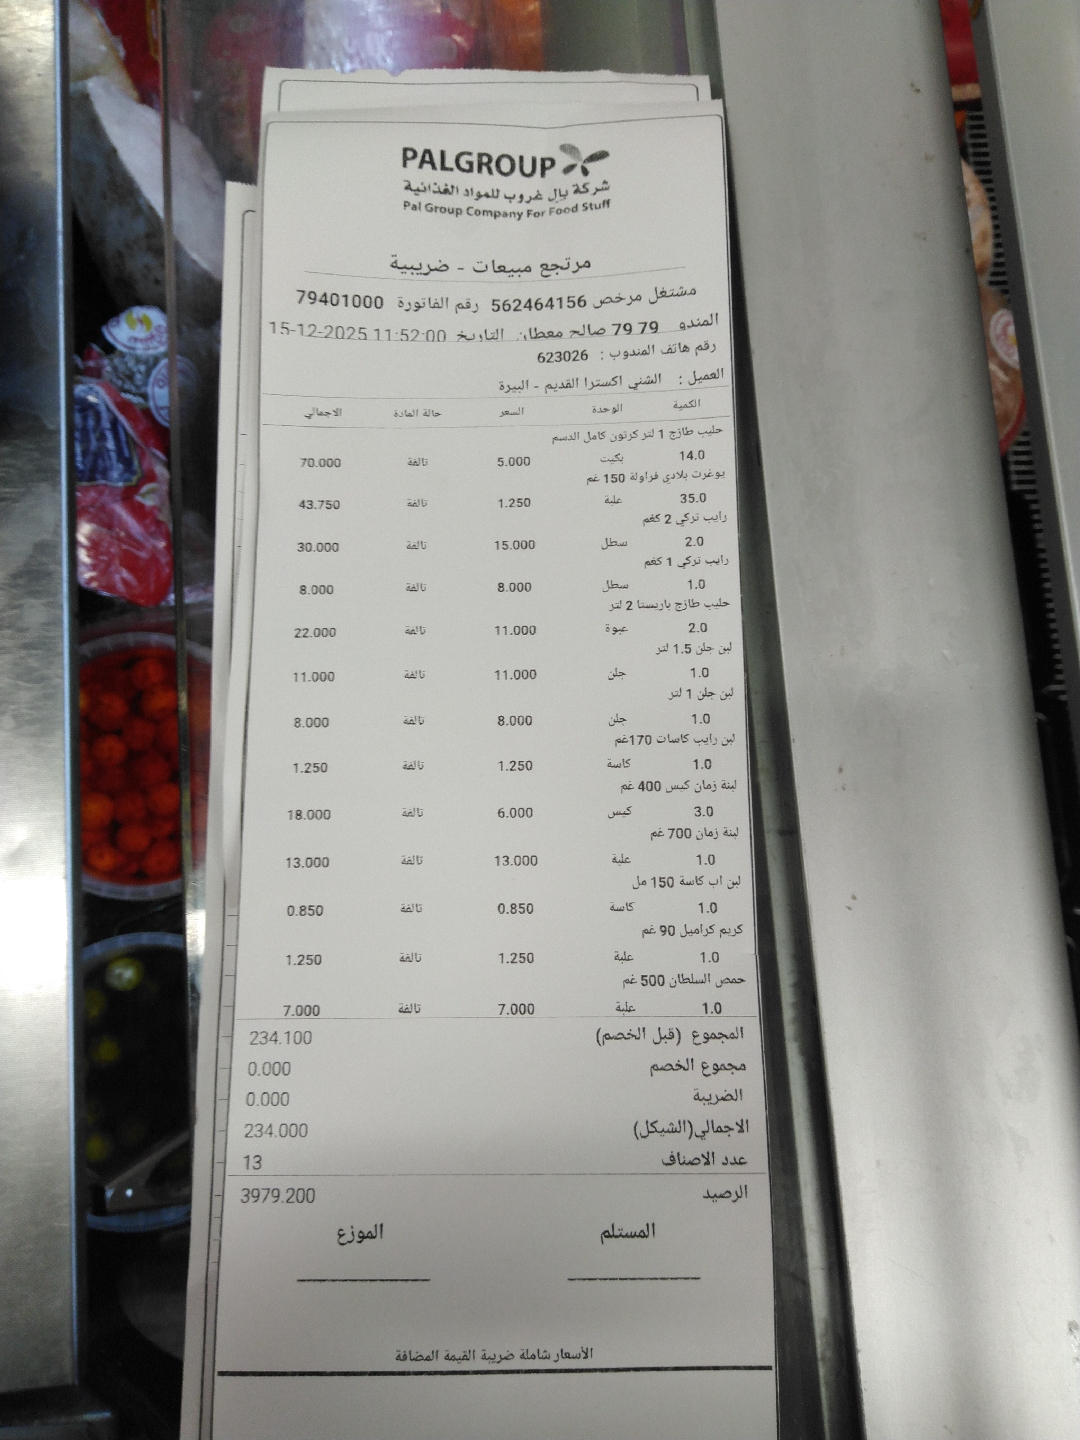 PALGROUP
شركة بال غروب للمواد الغذائية
Pal Group Company For Food Stuff
مرتجع مبيعات - ضريبية
مشتغل مرخص 562464156 رقم الفاتورة 79401000
المندو 79 79 صالح معطان التاريخ 15-12-2025 11:52:00
رقم هاتف المندوب : 623026
العميل : الشني اكسترا القديم - البيرة
الكمية الوحدة السعر حالة المادة الاجمالي
حليب طازج 1 لتر كرتون كامل الدسم
14.0 بكيت 5.000 تالفة 70.000
يوغرت بلادي فراولة 150 غم
35.0 علبة 1.250 تالفة 43.750
رايب تركي 2 كغم
2.0 سطل 15.000 تالفة 30.000
رايب تركي 1 كغم
1.0 سطل 8.000 تالفة 8.000
حليب طازج باريستا 2 لتر
2.0 عبوة 11.000 تالفة 22.000
لبن جلن 1.5 لتر
1.0 جلن 11.000 تالفة 11.000
لبن جلن 1 لتر
1.0 جلن 8.000 تالفة 8.000
لبن رايب كاسات 170غم
1.0 كاسة 1.250 تالفة 1.250
لبنة زمان كيس 400 غم
3.0 كيس 6.000 تالفة 18.000
لبنة زمان 700 غم
1.0 علبة 13.000 تالفة 13.000
لبن اب كاسة 150 مل
1.0 كاسة 0.850 تالفة 0.850
كريم كراميل 90 غم
1.0 علبة 1.250 تالفة 1.250
حمص السلطان 500 غم
1.0 علبة 7.000 تالفة 7.000
المجموع (قبل الخصم) 234.100
مجموع الخصم 0.000
الضريبة 0.000
الاجمالي(الشيكل) 234.000
عدد الاصناف 13
الرصيد 3979.200
المستلم الموزع
الأسعار شاملة ضريبة القيمة المضافة